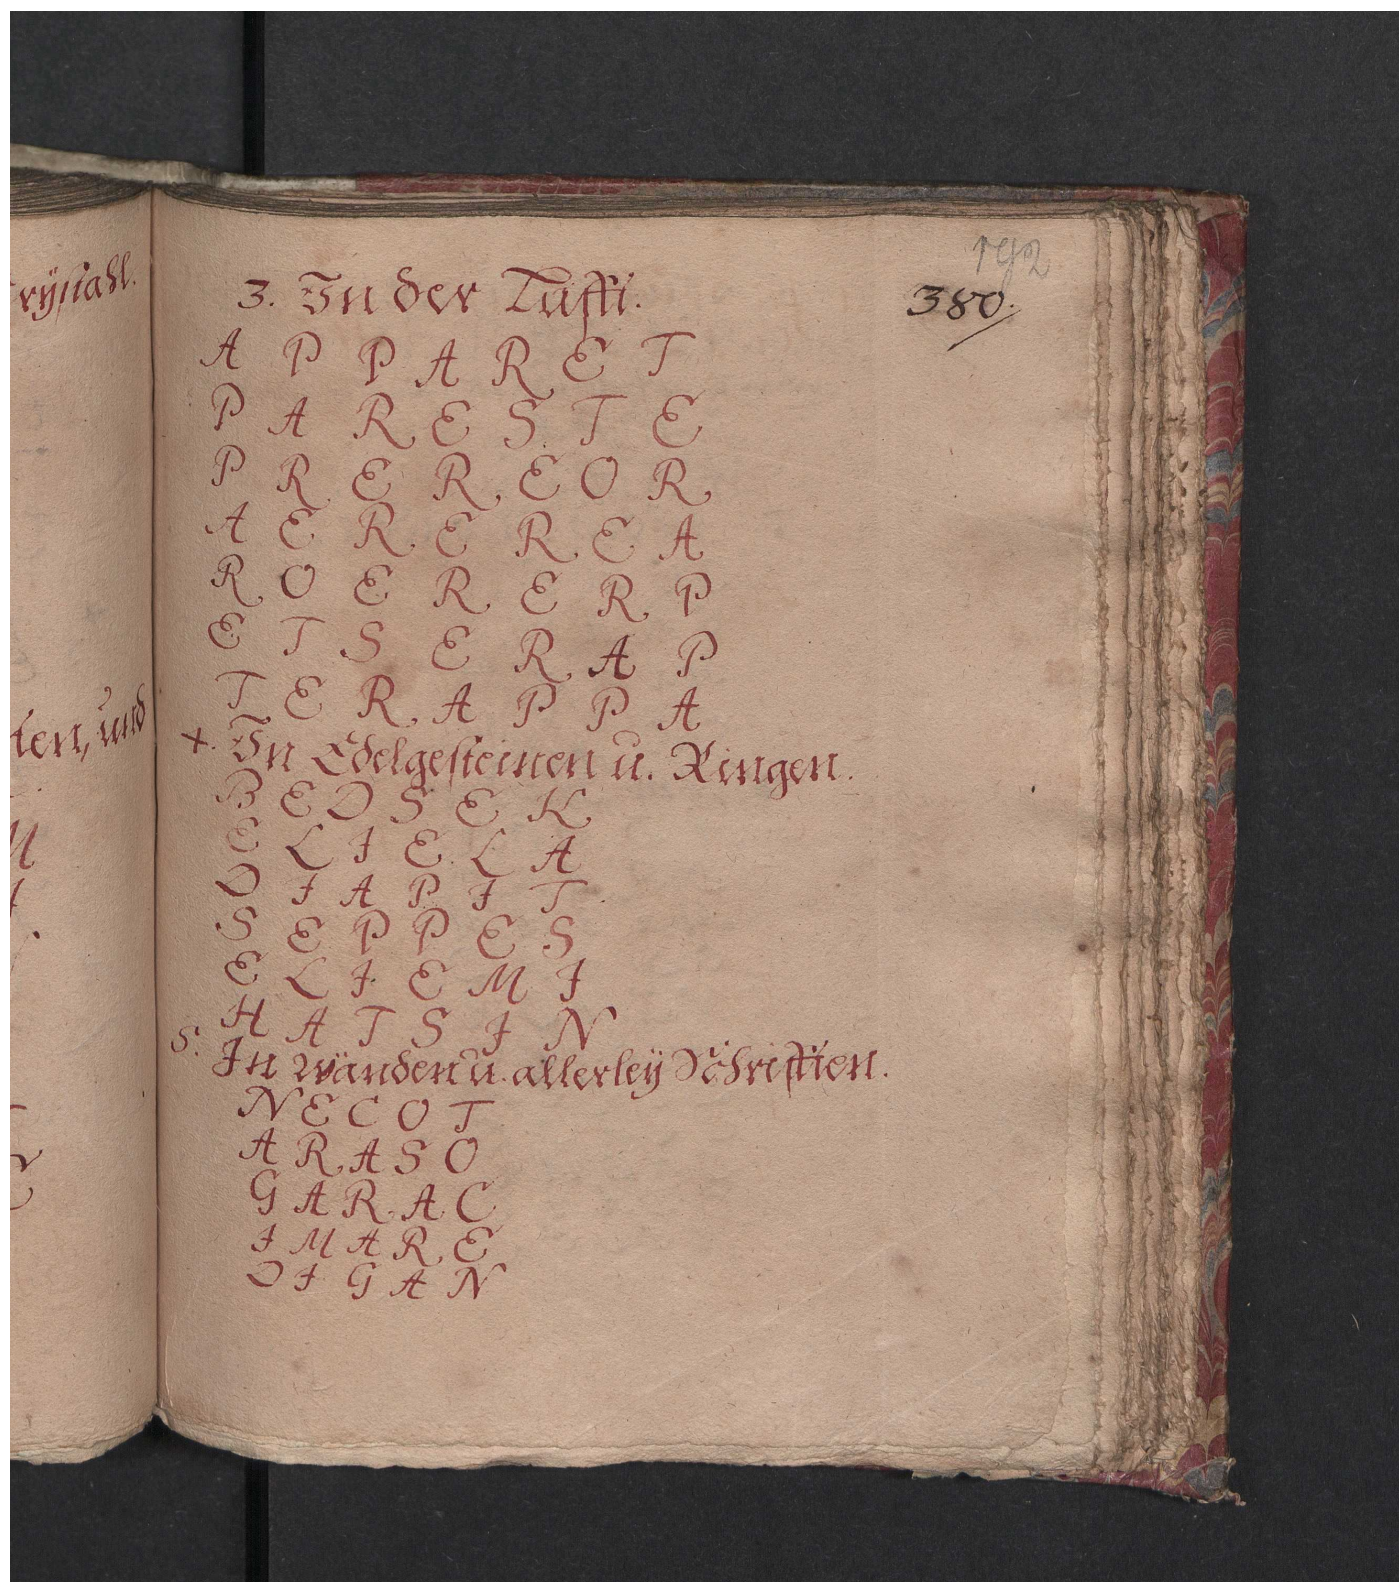 rÿstahl.
ten, und
192
3. In der Lufft.
380.
A P P A R E T
P A R E S T E
P R E R E O R
A E R E R E A
R O E R E R P
E T S E R A P
T E R A P P A
4. In Edelgesteinen u. Ringen.
B E D S E K
E L I E L A
D I A P I T
S E P P E S
E L I E M I
H A T S I N
5. In wänden u. allerleÿ Schrifften.
N E C O T
A R A S O
G A R A C
I M A R E
O I G A N